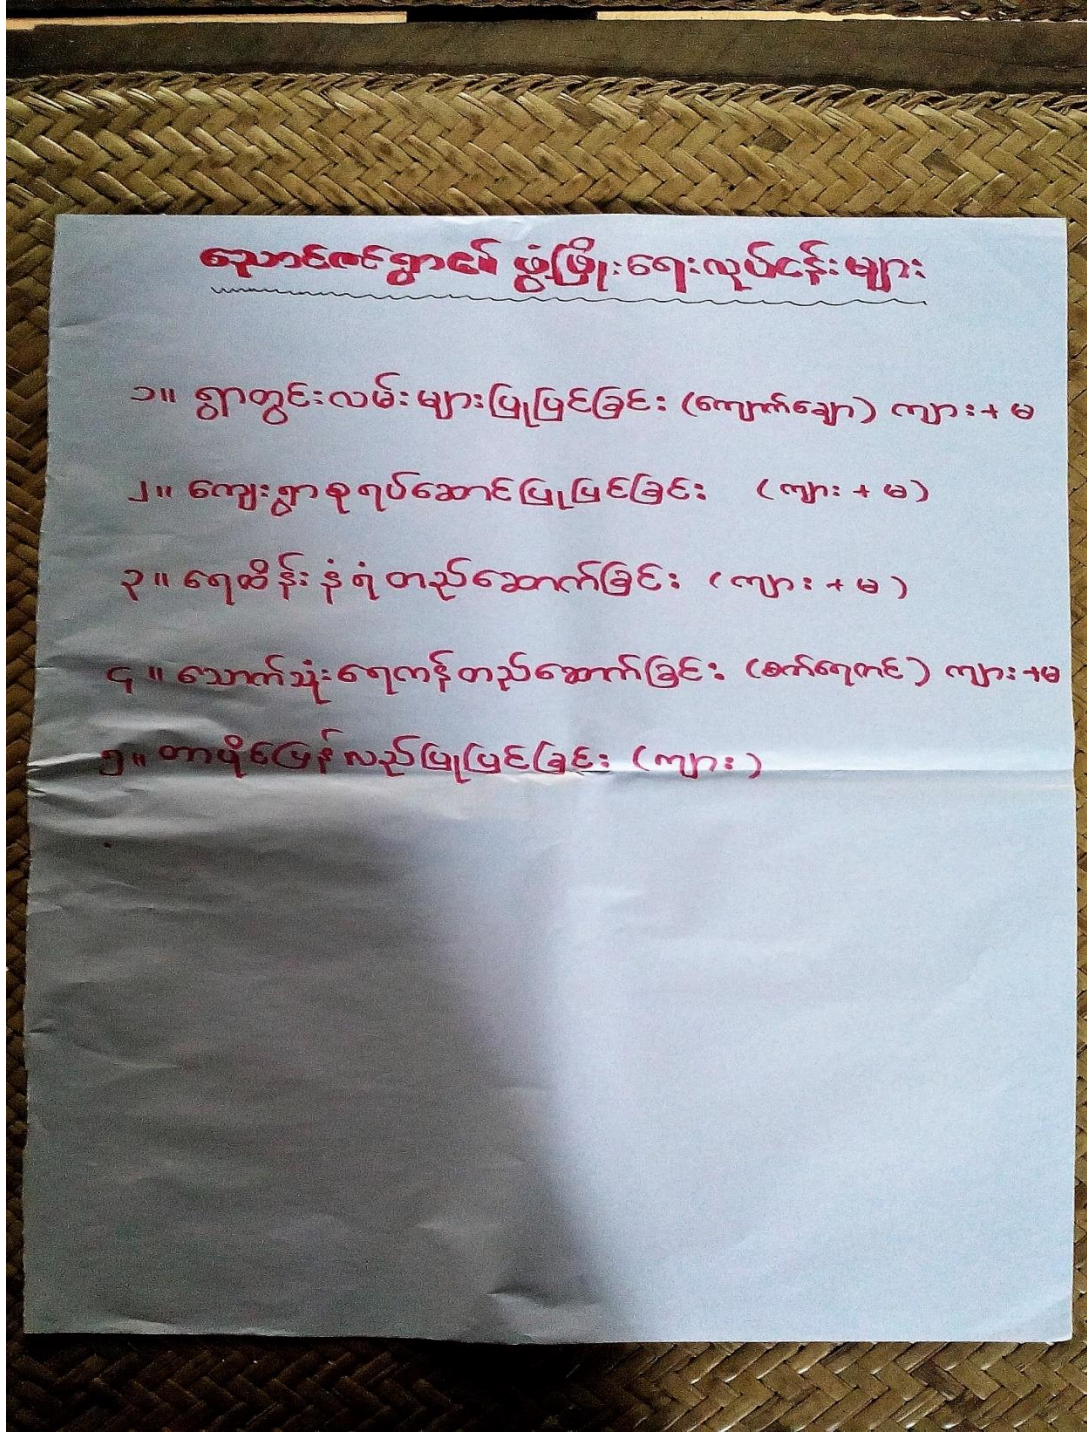 ညောင်ဇင်ရွာ၏ ဖွံ့ဖြိုးရေးလုပ်ငန်းများ
၁။ ရွာတွင်းလမ်းများပြုပြင်ခြင်း (ကျောက်ချော) ကျား+မ
၂။ ကျေးရွာစုရပ်ဆောင်ပြုပြင်ခြင်း (ကျား + မ)
၃။ ရေထိန်းနံရံတည်ဆောက်ခြင်း (ကျား + မ)
၄။ သောက်သုံးရေကန်တည်ဆောက်ခြင်း (စက်ရေတင်) ကျား+မ
၅။ တာပိုင်ပြန်လည်ပြုပြင်ခြင်း (ကျား)